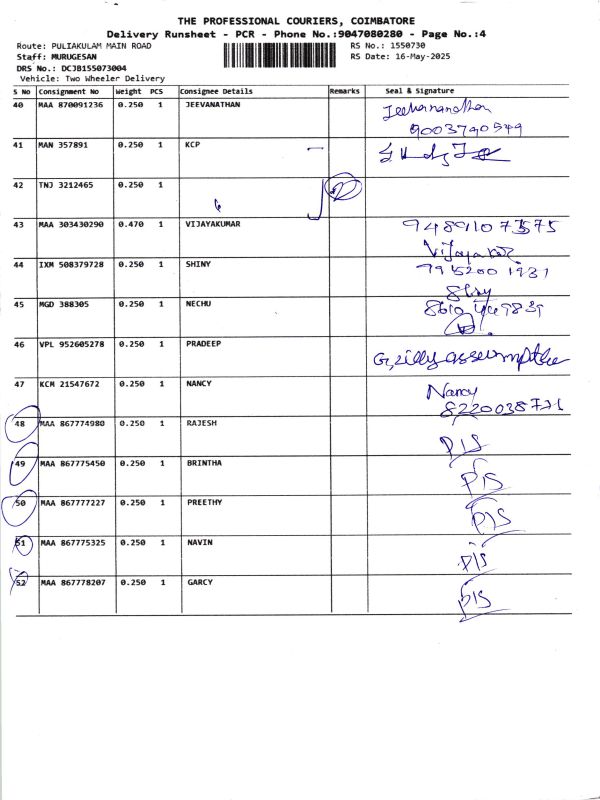 THE PROFESSIONAL COURIERS, COIMBATORE
Delivery Runsheet - PCR - Phone No.:9047080280 - Page No.:4
Route: PULIAKULAM MAIN ROAD RS No.: 1550730
Staff: MURUGESAN RS Date: 16-May-2025
DRS No.: DCJB155073004
Vehicle: Two Wheeler Delivery
S No Consignment No Weight PCS Consignee Details Remarks Seal & Signature
40 MAA 870091236 0.250 1 JEEVANATHAN Jeevananathan
9003740549
41 MAN 357891 0.250 1 KCP
42 TNJ 3212465 0.250 1
43 MAA 303430290 0.470 1 VIJAYAKUMAR 94891073575
Vijayakar
44 IXM 508379728 0.250 1 SHINY 7952001931
45 MGD 388305 0.250 1 NECHU
46 VPL 952605278 0.250 1 PRADEEP
47 KCM 21547672 0.250 1 NANCY Nancy
8220038721
48 MAA 867774980 0.250 1 RAJESH P/S
49 MAA 867775450 0.250 1 BRINTHA P/S
50 MAA 867777227 0.250 1 PREETHY P/S
51 MAA 867775325 0.250 1 NAVIN P/S
52 MAA 867778207 0.250 1 GARCY P/S